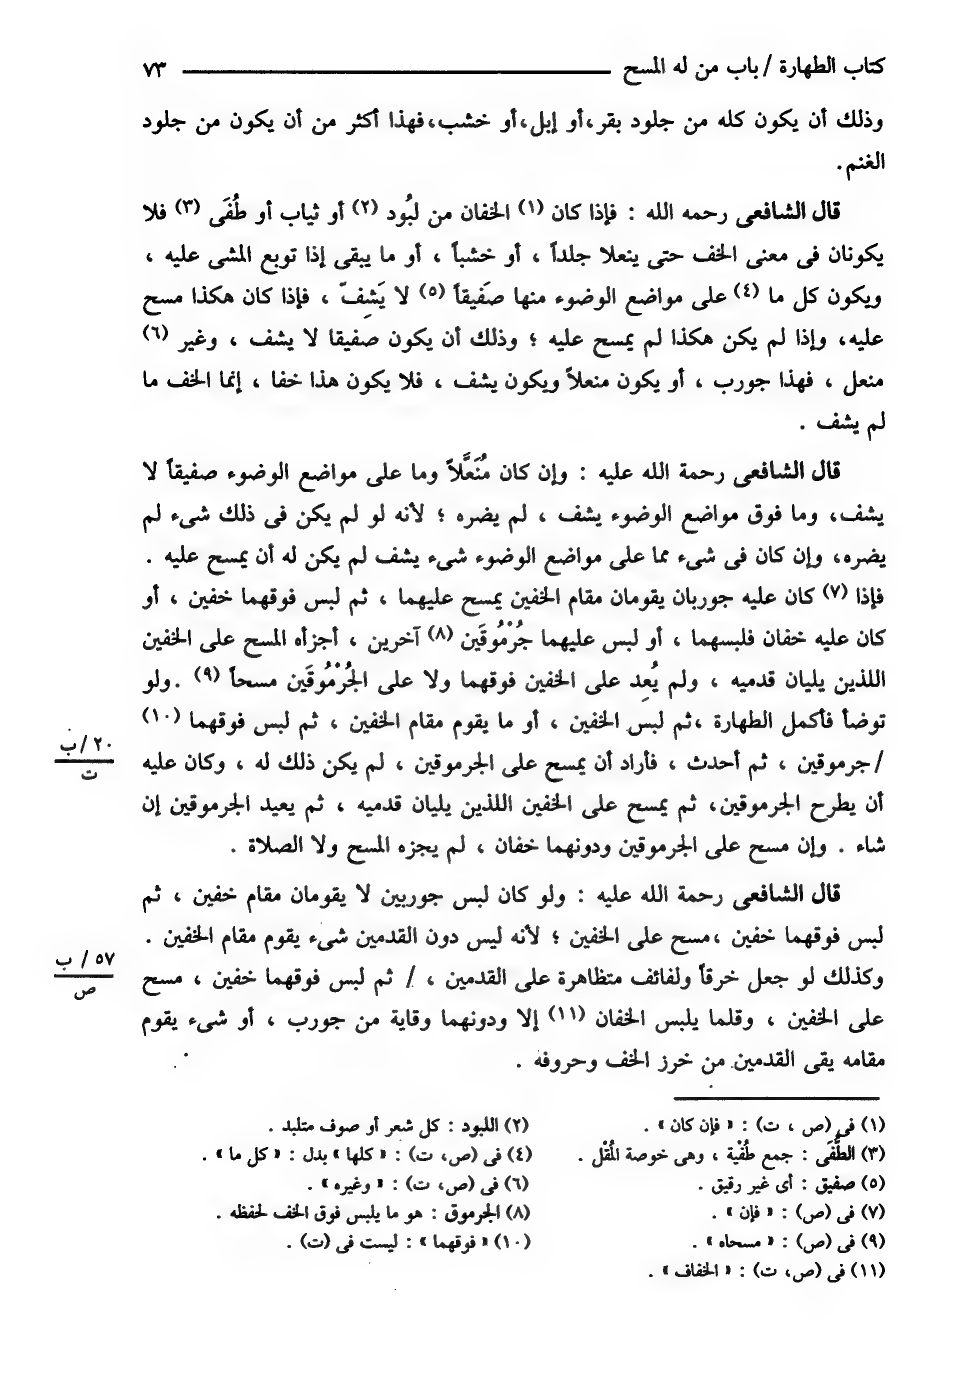 كتاب الطهارة / باب من له المسح ــــــــــ ٧٣
وذلك أن يكون كله من جلود بقر،أو إبل،أو خشب،فهذا أكثر من أن يكون من جلود
الغنم.
قال الشافعى رحمه الله : فإذا كان (١) الخفان من لبُود (٢) أو ثياب أو طُفَى (٣) فلا
يكونان فى معنى الخف حتى ينعلا جلداً ، أو خشباً ، أو ما يبقى إذا توبع المشى عليه ،
ويكون كل ما (٤) على مواضع الوضوء منها صَفيقاً (٥) لا يَشِفّ ، فإذا كان هكذا مسح
عليه، وإذا لم يكن هكذا لم يمسح عليه ؛ وذلك أن يكون صفيقا لا يشف ، وغير (٦)
منعل ، فهذا جورب ، أو يكون منعلاً ويكون يشف ، فلا يكون هذا خفا ، إنما الخف ما
لم يشف .
قال الشافعى رحمة الله عليه : وإن كان مُنَعَّلاً وما على مواضع الوضوء صفيقاً لا
يشف، وما فوق مواضع الوضوء يشف ، لم يضره ؛ لأنه لو لم يكن فى ذلك شىء لم
يضره، وإن كان فى شىء مما على مواضع الوضوء شىء يشف لم يكن له أن يمسح عليه .
فإذا (٧) كان عليه جوربان يقومان مقام الخفين يمسح عليهما ، ثم لبس فوقهما خفين ، أو
كان عليه خفان فلبسهما ، أو لبس عليهما جُرْمُوقَين (٨) آخرين ، أجزأه المسح على الخفين
اللذين يليان قدميه ، ولم يُعِد على الخفين فوقهما ولا على الجُرْمُوقَين مسحاً (٩) .ولو
توضأ فأكمل الطهارة ،ثم لبس الخفين ، أو ما يقوم مقام الخفين ، ثم لبس فوقهما (١٠)
/جرموقين ، ثم أحدث ، فأراد أن يمسح على الجرموقين ، لم يكن ذلك له ، وكان عليه
٢٠ /ب
ت
أن يطرح الجرموقين، ثم يمسح على الخفين اللذين يليان قدميه ، ثم يعيد الجرموقين إن
شاء . وإن مسح على الجرموقين ودونهما خفان ، لم يجزه المسح ولا الصلاة .
قال الشافعى رحمة الله عليه : ولو كان لبس جوربين لا يقومان مقام خفين ، ثم
لبس فوقهما خفين ،مسح على الخفين ؛ لأنه ليس دون القدمين شىء يقوم مقام الخفين .
وكذلك لو جعل خرقاً ولفائف متظاهرة على القدمين ، / ثم لبس فوقهما خفين ، مسح
٥٧ / ب
ص
على الخفين ، وقلما يلبس الخفان (١١) إلا ودونهما وقاية من جورب ، أو شىء يقوم
مقامه يقى القدمين من خرز الخف وحروفه .
(١) فى (ص ، ت) : « فإن كان » .
(٢) اللبود : كل شعر أو صوف متلبد .
(٣) الطُّفَى : جمع طُفْية ، وهى خوصة المُقْل .
(٤) فى (ص، ت) : « كلها » بدل : « كل ما » .
(٥) صفيق : أى غير رقيق .
(٦) فى (ص، ت) : « وغيره » .
(٧) فى (ص) : « فإن » .
(٨) الجرموق : هو ما يلبس فوق الخف لحفظه .
(٩) فى (ص) : « مسحاه » .
(١٠) « فوقهما » : ليست فى (ت) .
(١١) فى (ص، ت) : « الخفاف » .